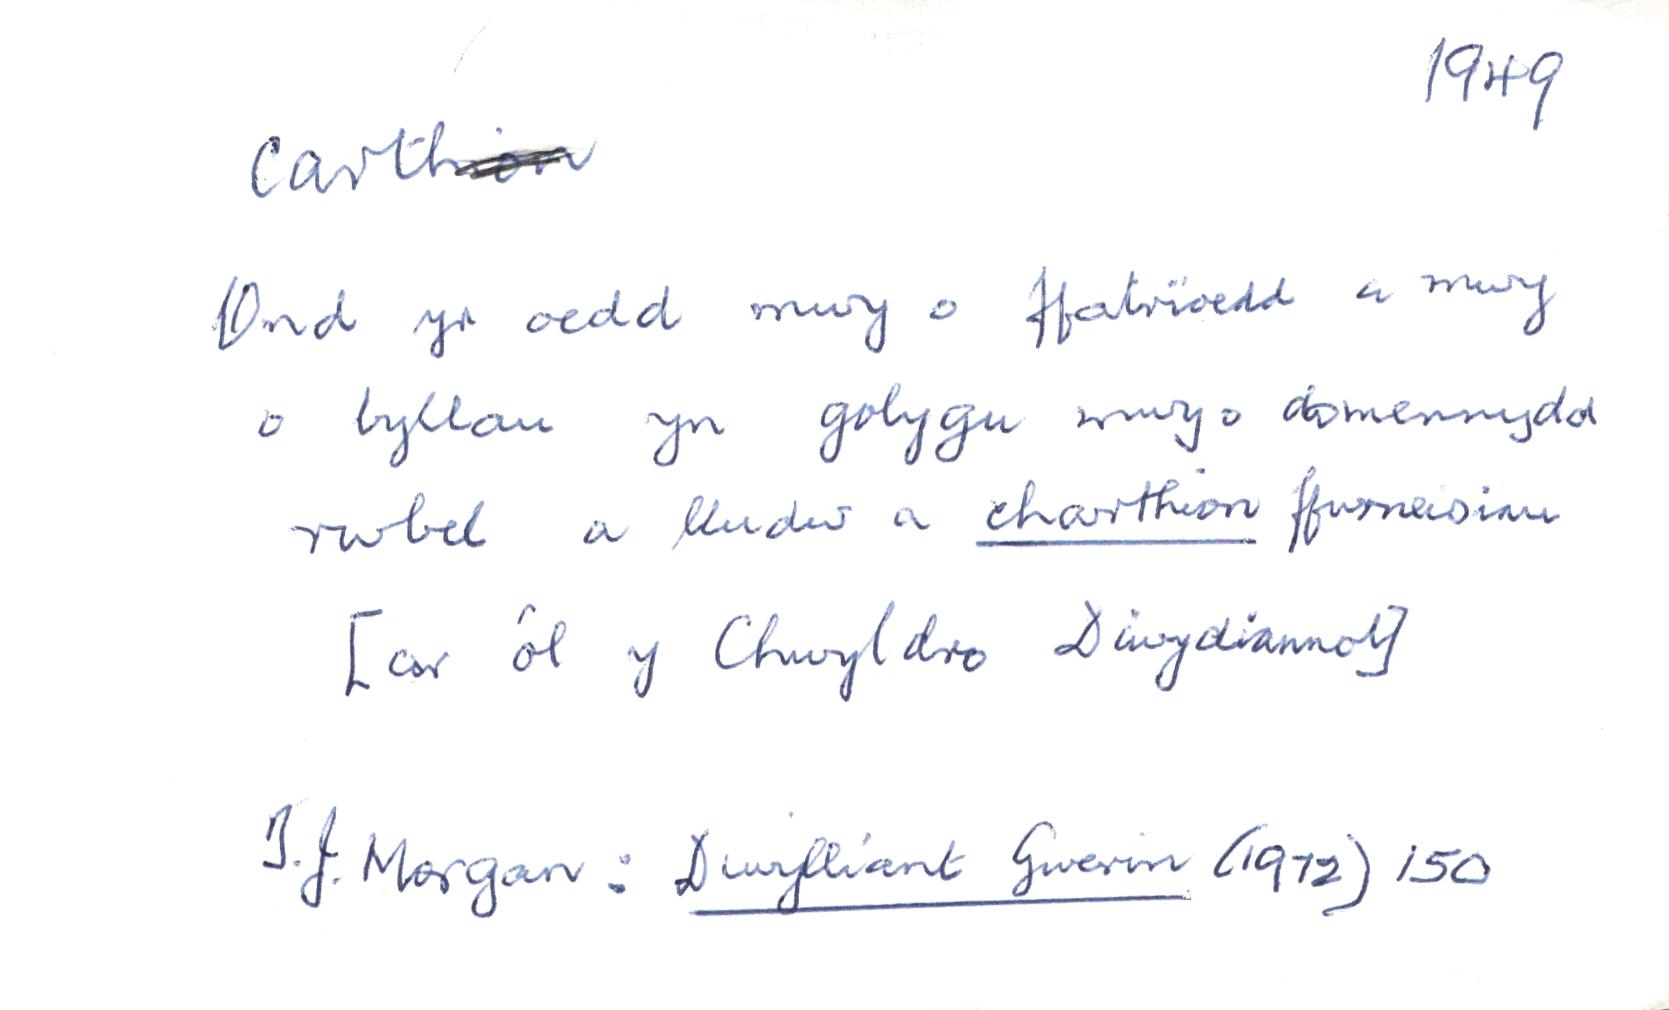 1949
carthion
Ond yr oedd mwy o ffatrïoedd a mwy
o byllau yn golygu mwy o domennydd
rwbel a lludw a charthion ffwrneisiau
[ar ôl y Chwyldro Diwydiannol]
T.J. Morgan: Diwylliant Gwerin (1972) 150